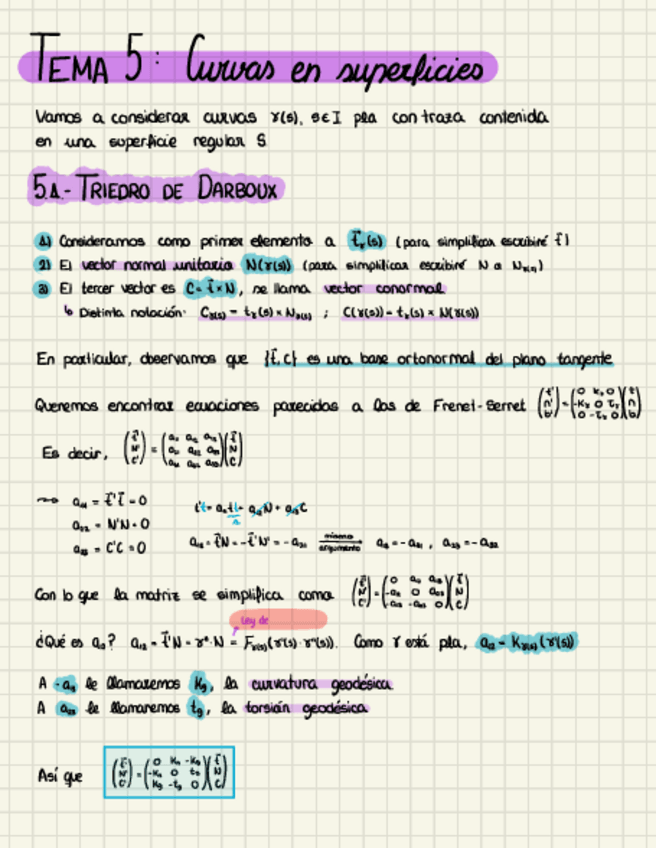 TEMA 5: Curvas en superficies
Vamos a considerar curvas γ(s), s∈I pla con traza contenida
en una superficie regular S
5.1.- TRIEDRO DE DARBOUX
1) Consideramos como primer elemento a t⃗_γ(s) (para simplificar escribiré t⃗)
2) El vector normal unitario N(γ(s)) (para simplificar escribiré N o N_γ(s))
3) El tercer vector es C = t⃗×N, se llama vector conormal
↳ Distinta notación: C_γ(s) = t_γ(s) × N_γ(s) ; C(γ(s)) = t_γ(s) × N(γ(s))
En particular, observamos que {t⃗,c} es una base ortonormal del plano tangente
Queremos encontrar ecuaciones parecidas a las de Frenet-Serret
Es decir,
a₁₁ = t⃗'t⃗ = 0
a₂₂ = N'N = 0
a₃₃ = C'C = 0
a₁₂ = t⃗'N = -t⃗N' = -a₂₁ mismo argumento a₁₃ = -a₃₁, a₂₃ = -a₃₂
Con lo que la matriz se simplifica como
Ley de
¿Qué es a₁₂? a₁₂ = t⃗'N = γ''·N = Como γ está pla,
le llamaremos Kg, la curvatura geodésica
A a₂₃ le llamaremos tg, la torsión geodésica
Así que